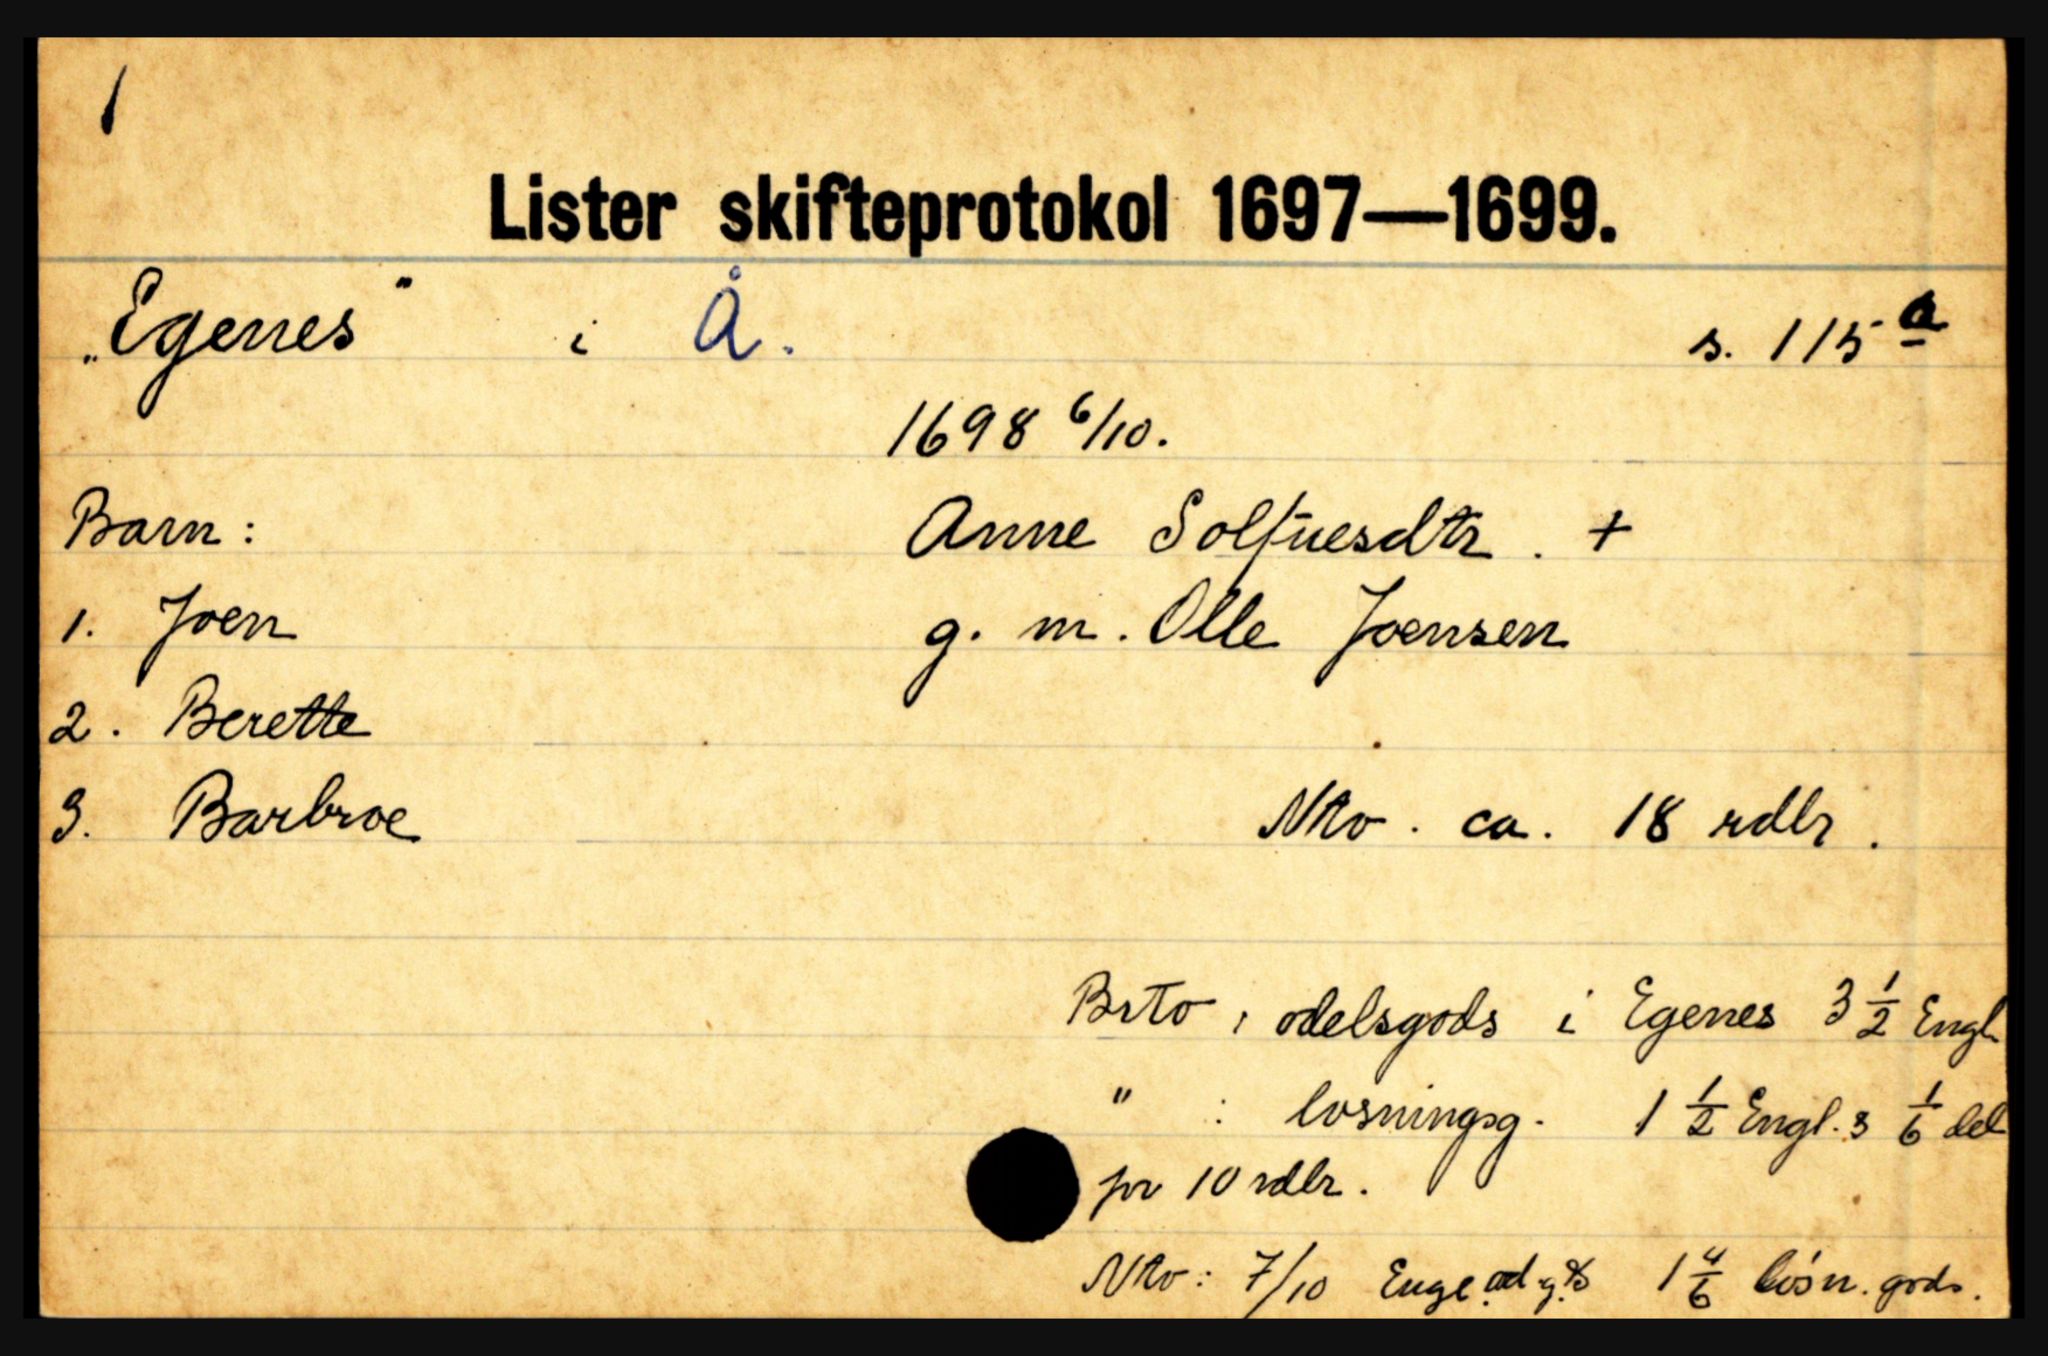 1
Lister skifteprotokol 1697—1699.
„Egenes" i Å. s. 115 a
1698 6/10.
Barn: Anne Solfuesdtr. +
1. Joen g. m. Olle Joensen
2. Berette
3. Barbroe Nto. ca. 18 rdlr.
Brto: odelsgods i Egenes 3 1/2 Engl
" : løsningsg. 1 1/2 Engl. & 1/6 del
for 10 rdlr.
Nto: 7/10 Enge od.g. & 1 4/6 løsn. gods.